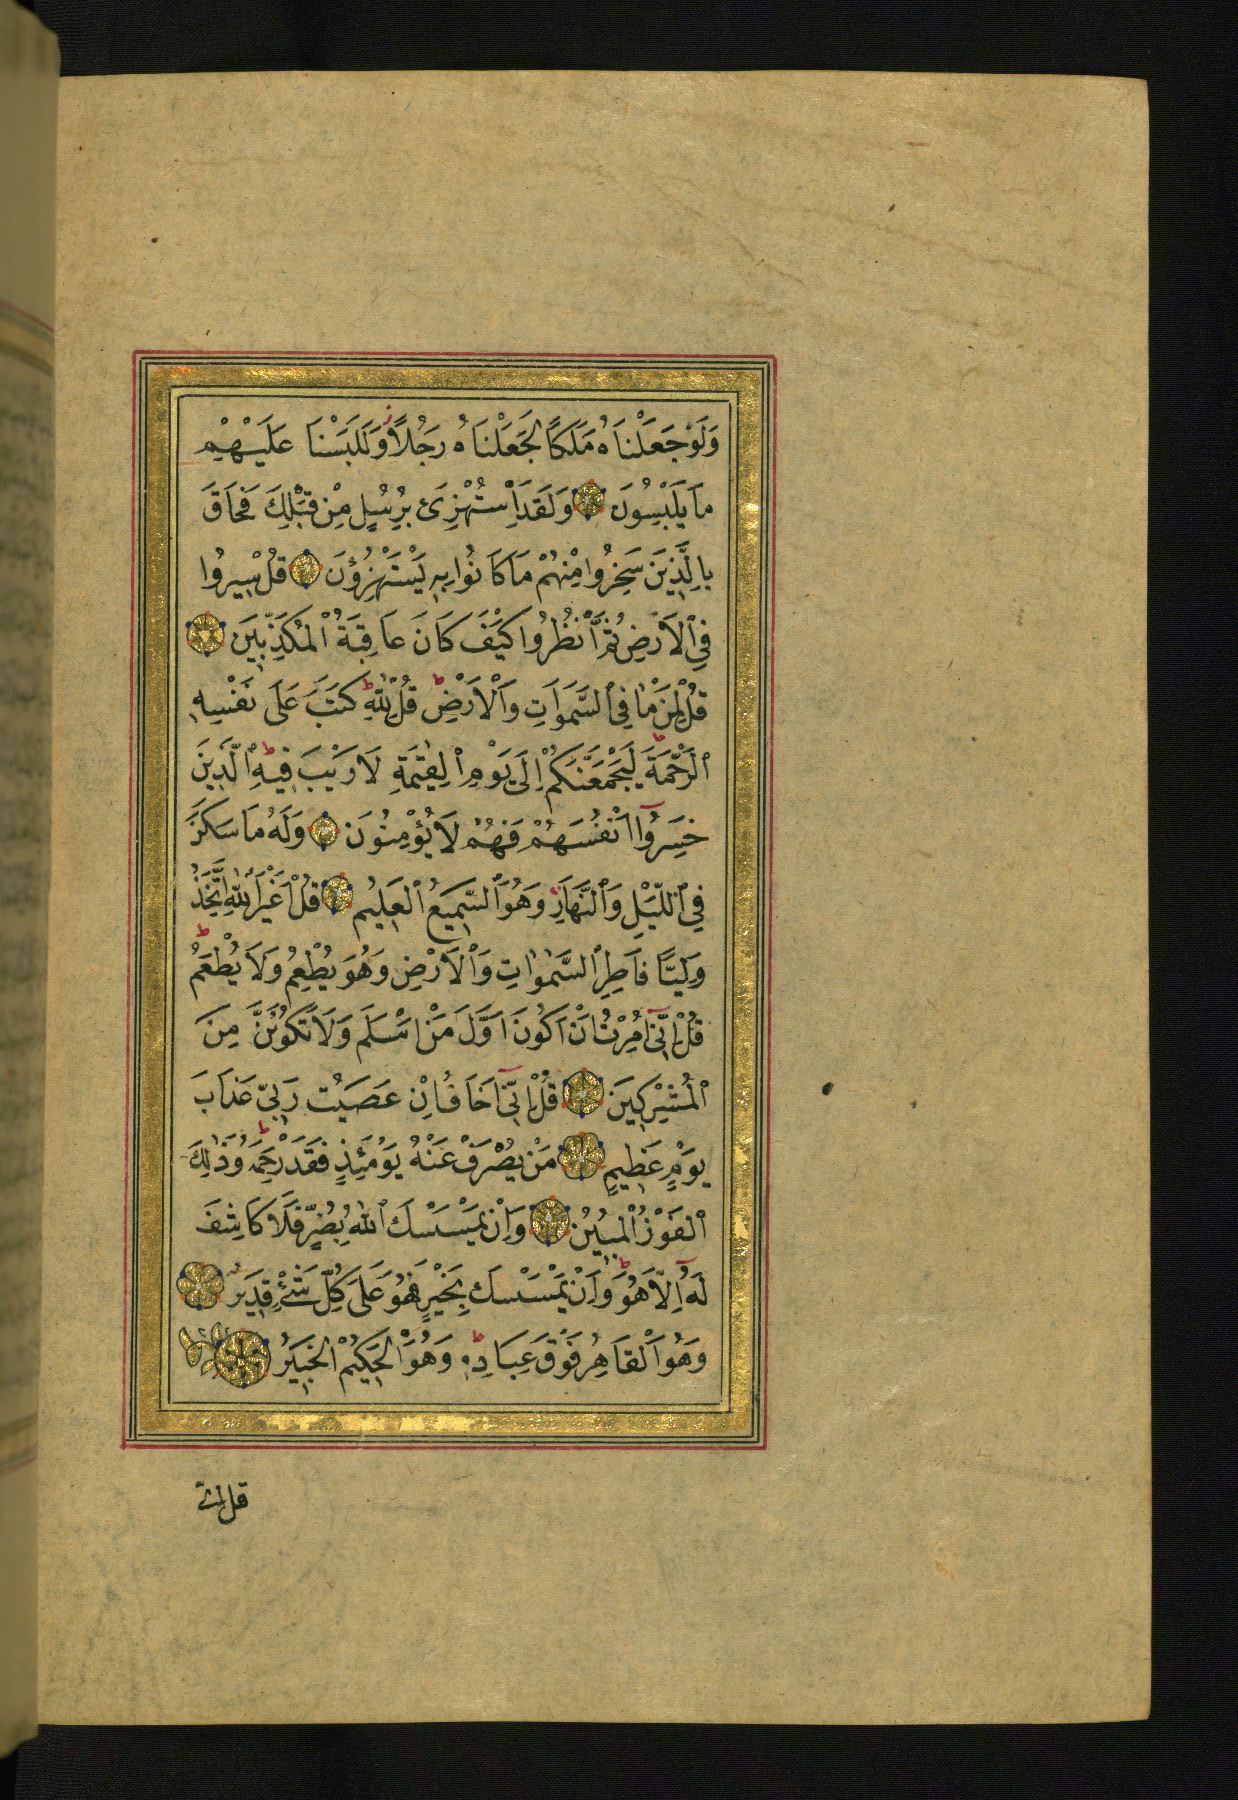 وَلَوْ جَعَلْنَاهُ مَلَكًا لَجَعَلْنَاهُ رَجُلًا وَلَلَبَسْنَا عَلَيْهِمْ
مَا يَلْبِسُونَ وَلَقَدِ ٱسْتُهْزِئَ بِرُسُلٍ مِنْ قَبْلِكَ فَحَاقَ
بِالَّذِينَ سَخِرُوا مِنْهُمْ مَا كَانُوا بِهِ يَسْتَهْزِؤُنَ قُلْ سِيرُوا
فِي ٱلْاَرْضِ ثُمَّ ٱنْظُرُوا كَيْفَ كَانَ عَاقِبَةُ ٱلْمُكَذِّبِينَ
قُلْ لِمَنْ مَا فِي ٱلسَّمٰوَاتِ وَٱلْاَرْضِ قُلْ لِلّٰهِ كَتَبَ عَلَى نَفْسِهِ
ٱلرَّحْمَةَ لَيَجْمَعَنَّكُمْ اِلَى يَوْمِ ٱلْقِيٰمَةِ لَا رَيْبَ فِيهِ ٱلَّذِينَ
خَسِرُوٓا اَنْفُسَهُمْ فَهُمْ لَا يُؤْمِنُونَ وَلَهُ مَا سَكَنَ
فِي ٱللَّيْلِ وَٱلنَّهَارِ وَهُوَ ٱلسَّمِيعُ ٱلْعَلِيمُ قُلْ اَغَيْرَ ٱللّٰهِ اَتَّخِذُ
وَلِيًّا فَاطِرِ ٱلسَّمٰوَاتِ وَٱلْاَرْضِ وَهُوَ يُطْعِمُ وَلَا يُطْعَمُ
قُلْ اِنِّيٓ اُمِرْتُ اَنْ اَكُونَ اَوَّلَ مَنْ اَسْلَمَ وَلَا تَكُونَنَّ مِنَ
ٱلْمُشْرِكِينَ قُلْ اِنِّيٓ اَخَافُ اِنْ عَصَيْتُ رَبِّي عَذَابَ
يَوْمٍ عَظِيمٍ مَنْ يُصْرَفْ عَنْهُ يَوْمَئِذٍ فَقَدْ رَحِمَهُ وَذٰلِكَ
ٱلْفَوْزُ ٱلْمُبِينُ وَاِنْ يَمْسَسْكَ ٱللّٰهُ بِضُرٍّ فَلَا كَاشِفَ
لَهُٓ اِلَّا هُوَ وَاِنْ يَمْسَسْكَ بِخَيْرٍ فَهُوَ عَلَى كُلِّ شَيْءٍ قَدِيرٌ
وَهُوَ ٱلْقَاهِرُ فَوْقَ عِبَادِهِ وَهُوَ ٱلْحَكِيمُ ٱلْخَبِيرُ
قل اى